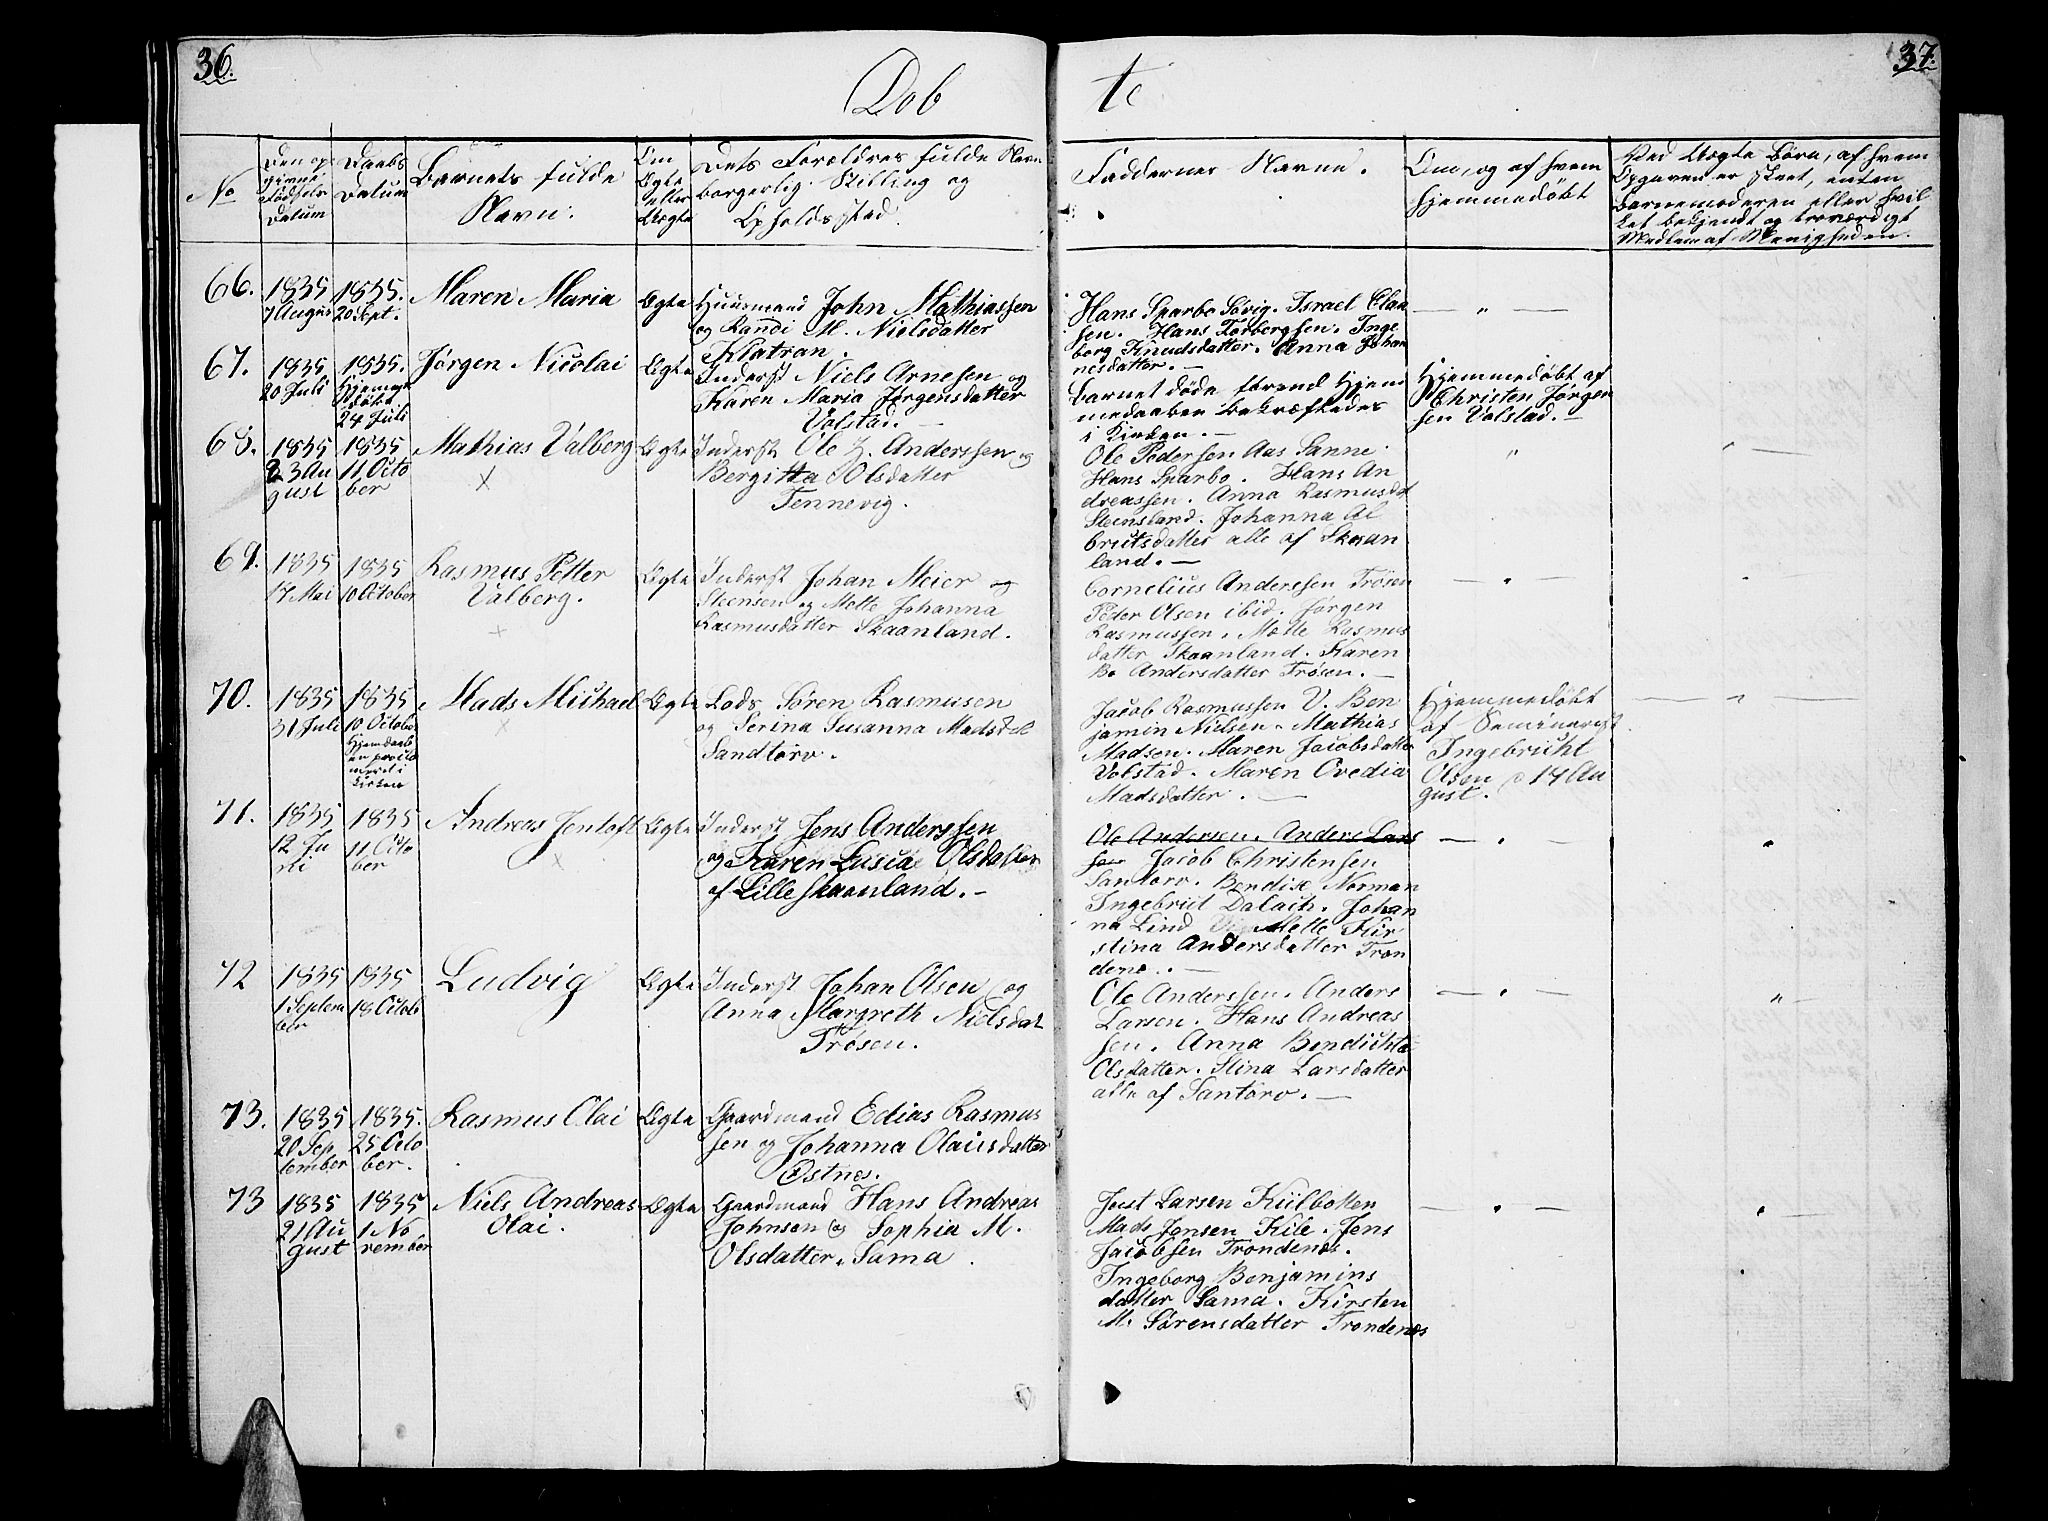 36.
37.
Döb
te
No
Den op
givne
Fødsels
Datum
Daabs
Datum
Barnets fulde
Navn.
Om
Ægte
eller
Uægte
Dets Forældres fulde Navn
borgerlig Stilling og
Opholdssted.
Faddernes Navne.
Om, og af hvem
hjemmedøbt
Ved Uægte Børn, af hvem
Opgaven er skeet, enten
Barnemoderen eller hvil
ket bekjendt og troværdigt
Medlem af Menigheden.
66.
1835
7 Augus
1835.
20 Sept.
Maren Maria
Ægte
Huusmand John Mathiassen
og Randi M. Nielsdatter
Klatran.
Hans Sparbo Søvig. Israel Claa
sen. Hans Torbergsen. Inge
borg Knudsdatter. Anna Johan
nesdatter. —
— " —
67.
1835
20 Juli
1835.
Hjemme
døbt
24 Juli
Jørgen Nicolai
Ægte
Inderst Niels Arnesen og
Karen Maria Jørgensdatter
Volstad. —
Barnet døde forend Hjem
medaaben bekræftedes
i Kirken. —
Hjemmedøbt af
Christen Jørgen
sen Volstad. —
68.
1835
23 Au
gust
1835
11 Octo
ber
Mathias Valberg
x
Ægte
Inderst Ole Z. Anderssen og
Bergitta Olsdatter
Tennevig.
Ole Pedersen Aas Sanne
Hans Sparbo. Hans An
dreassen. Anna Rasmusdat
Steensland. Johanna Al
brutsdatter alle af Skaan
land. —
"
" —
69.
1835
17 Mai
1835
10 October
Rasmus Petter
Valberg.
x
Ægte
Inderst Johan Meier og
Steensen og Mette Johanna
Rasmusdatter Skaanland.
Cornelius Anderssen Trøsen
Peder Olsen ibid. Jørgen
Rasmussen. Mette Rasmus
datter Skaanland. Karen
Bo Andersdatter Trøsen. —
— " —
" —
70.
1835
31 Juli
1835
10 October
Hjemdaab
en procla
meret i
Kirken
Mads Michael
x
Ægte
Lods Søren Rasmusen
og Serina Susanna Madsdat
Sandtorv.
Jacob Rasmussen V. Ben
jamin Nielsen. Mathias
Madsen. Maren Jacobsdatter
Volstad. Maren Ovedia
Madsdatter. —
Hjemmedøbt
af Seminarist
Ingebricht
Olsen d 17 Au
gust.
— " —
71.
1835
12 Ju
ni
1835
11 Octo
ber
Andreas Jentoft
x
Ægte
Inderst Jens Anderssen
og Karen Lucia Olsdatter
af Lilleskaanland. —
Ole Andersen. Anders Lars
sen Jacob Christensen
Santorv. Bendix Norman
Ingebrict Dalach. Johan
na Lind Mette Kir
stina Andersdatter Tron
denæ. —
— " —
"
72
1835
1 Septem
ber
1835
18 Octob
Ludvig
Ægte
Inderst Johan Olsen og
Anna Margreth Nielsdat
Trøsen.
Ole Anderssen. Anders
Larsen. Hans Andreas
sen. Anna Bendichta
Olsdatter. Stina Larsdatter
alle af Santorv. —
— " —
" —
73.
1835
20 Sep
tember
1835.
25 Octo
ber.
Rasmus Olai
Ægte
Gaardmand Edias Rasmus
sen og Johanna Olausdatter
Østnes.
73
1835
21 Au
gust
1835
1 No
vember
Niels Andreas
Olai.
Ægte
Gaardmand Hans Andreas
Johnsen og Sophia M.
Olsdatter. Sama.
Just Larsen Kiilbotten
Mads Jensen Kile. Jens
Jacobsen Trondenes.
Ingeborg Benjamins
datter Sama. Kirsten
M. Sørensdatter Trondenes
— " —
" —